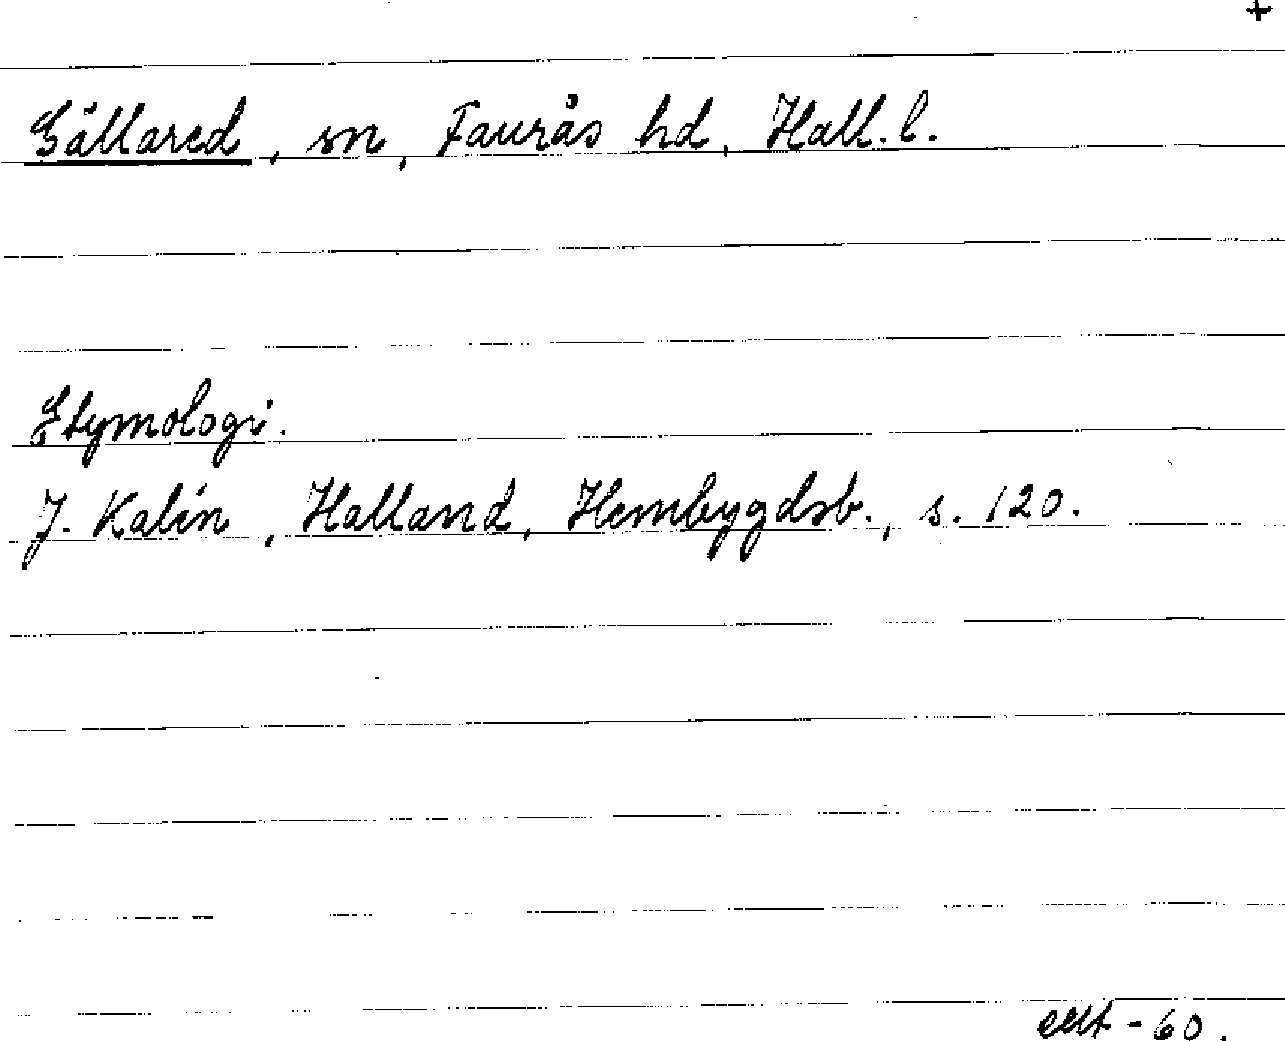 +
Gällared, sn, Faurås hd, Hall. l.
Etymologi.
J. Kalén, Halland, Hembygdsb., s. 120.
- 60.